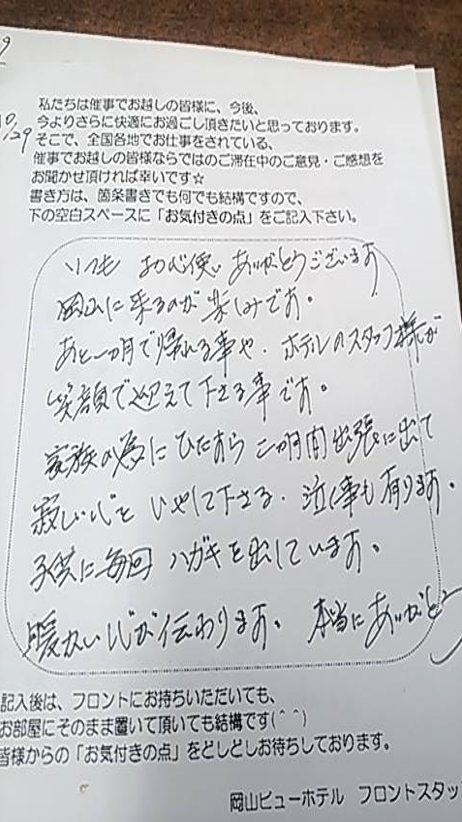 10/29
私たちは催事でお越しの皆様に、今後、
今よりさらに快適にお過ごし頂きたいと思っております。
そこで、全国各地でお仕事をされている、
催事でお越しの皆様ならではのご滞在中のご意見・ご感想を
お聞かせ頂ければ幸いです☆
書き方は、箇条書きでも何でも結構ですので、
下の空白スペースに「お気付きの点」をご記入下さい。
いつも お心使い ありがとうございます
岡山に来るのが楽しみです。
あと一ヵ月で帰れる事や、ホテルのスタッフ様が
笑顔で迎えて下さる事です。
家族の為に ひたすら 二ヵ月間 出張に出て
寂しい心を いやして下さる、泣く事も有ります。
子供に毎回 ハガキを出しています。
暖かい心が伝わります。 本当にありがとう
記入後は、フロントにお持ちいただいても、
お部屋にそのまま置いて頂いても結構です(^^)
皆様からの「お気付きの点」をどしどしお待ちしております。
岡山ビューホテル フロントスタッ